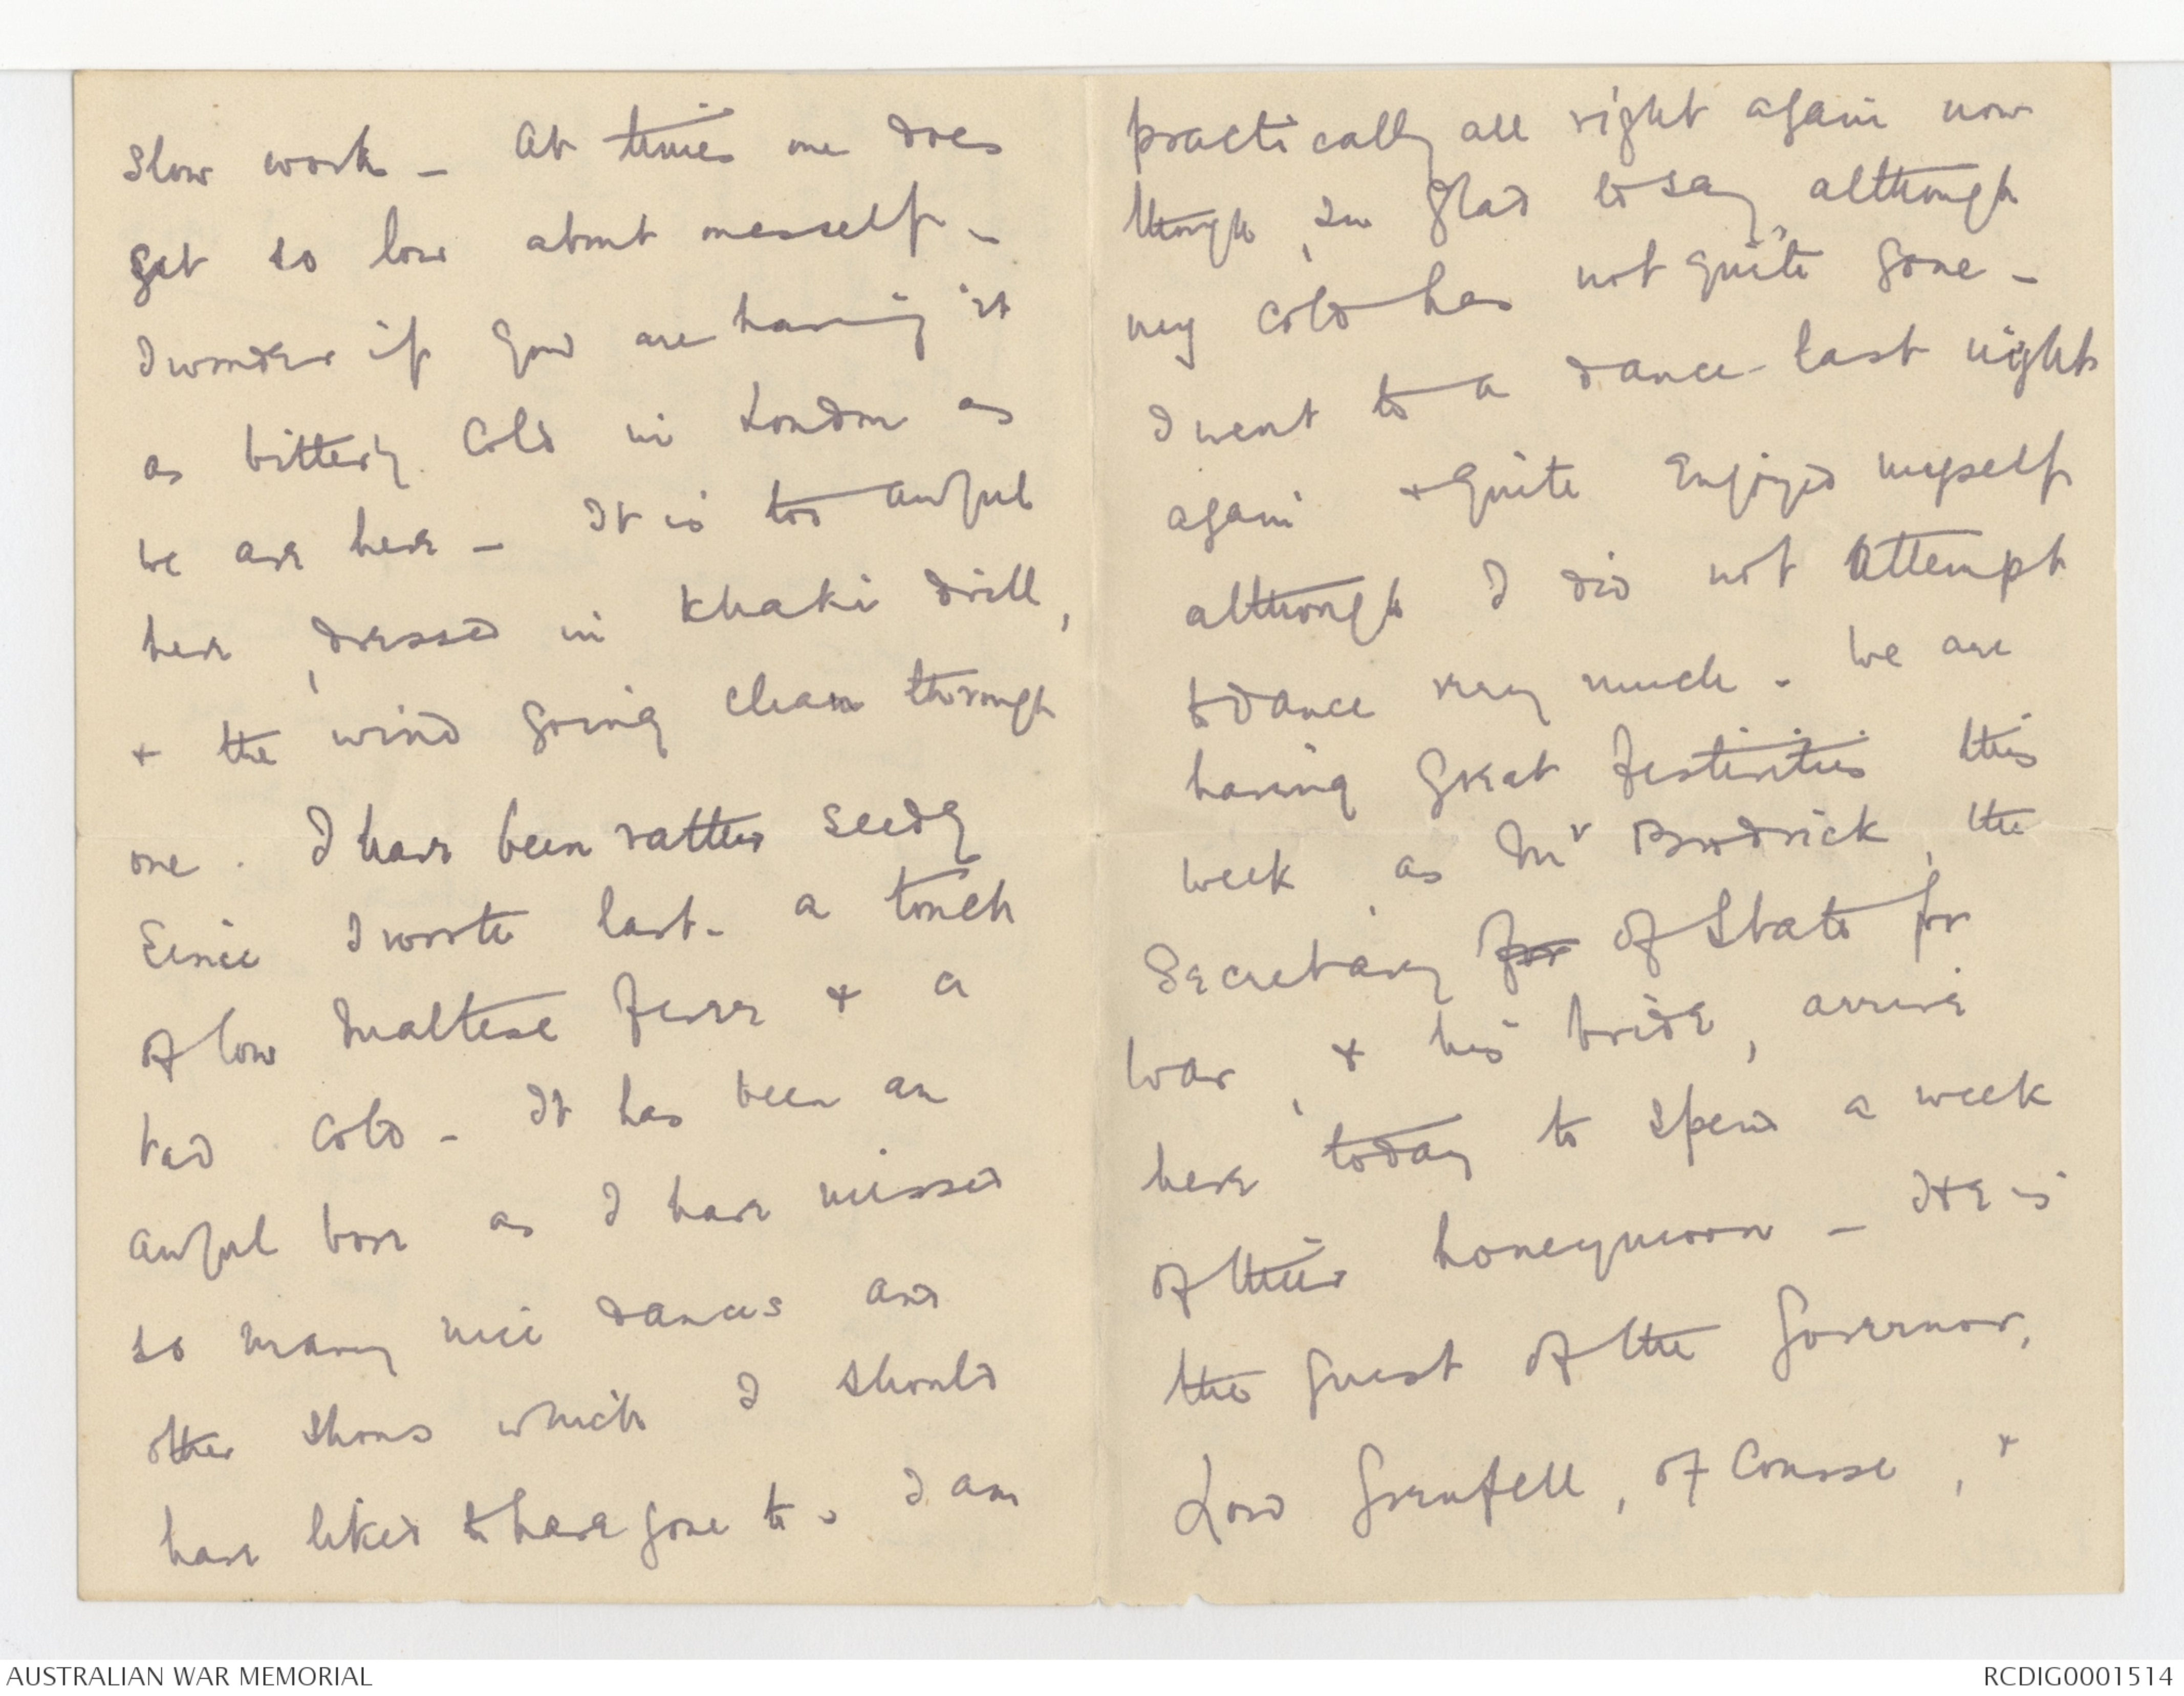 slow work – At times one does
get so low about onesself –
I wonder if you are having it
as bitterly cold in London as
we are here – It is too awful
here, dressed in Khaki drill,
+ the wind going clean through
one. I have been rather seedy
since I wrote last – a touch
of low Maltese fever + a
bad cold – It has been an
awful bore as I have missed
so many nice dances and
other shows which I should
have liked to have gone to. I am
practically all right again now
though, I'm glad to say, although
my cold has not quite gone –
I went to a dance last night
again + quite enjoyed myself
although I did not attempt
to dance very much. We are
having great festivities this
week, as Mr Brodrick, the
Secretary for of State for
War, + his bride, arrive
here today to spend a week
of their honeymoon – He is
the guest of the Governor,
Lord Grenfell, of course, +
AUSTRALIAN WAR MEMORIAL
RCDIG0001514